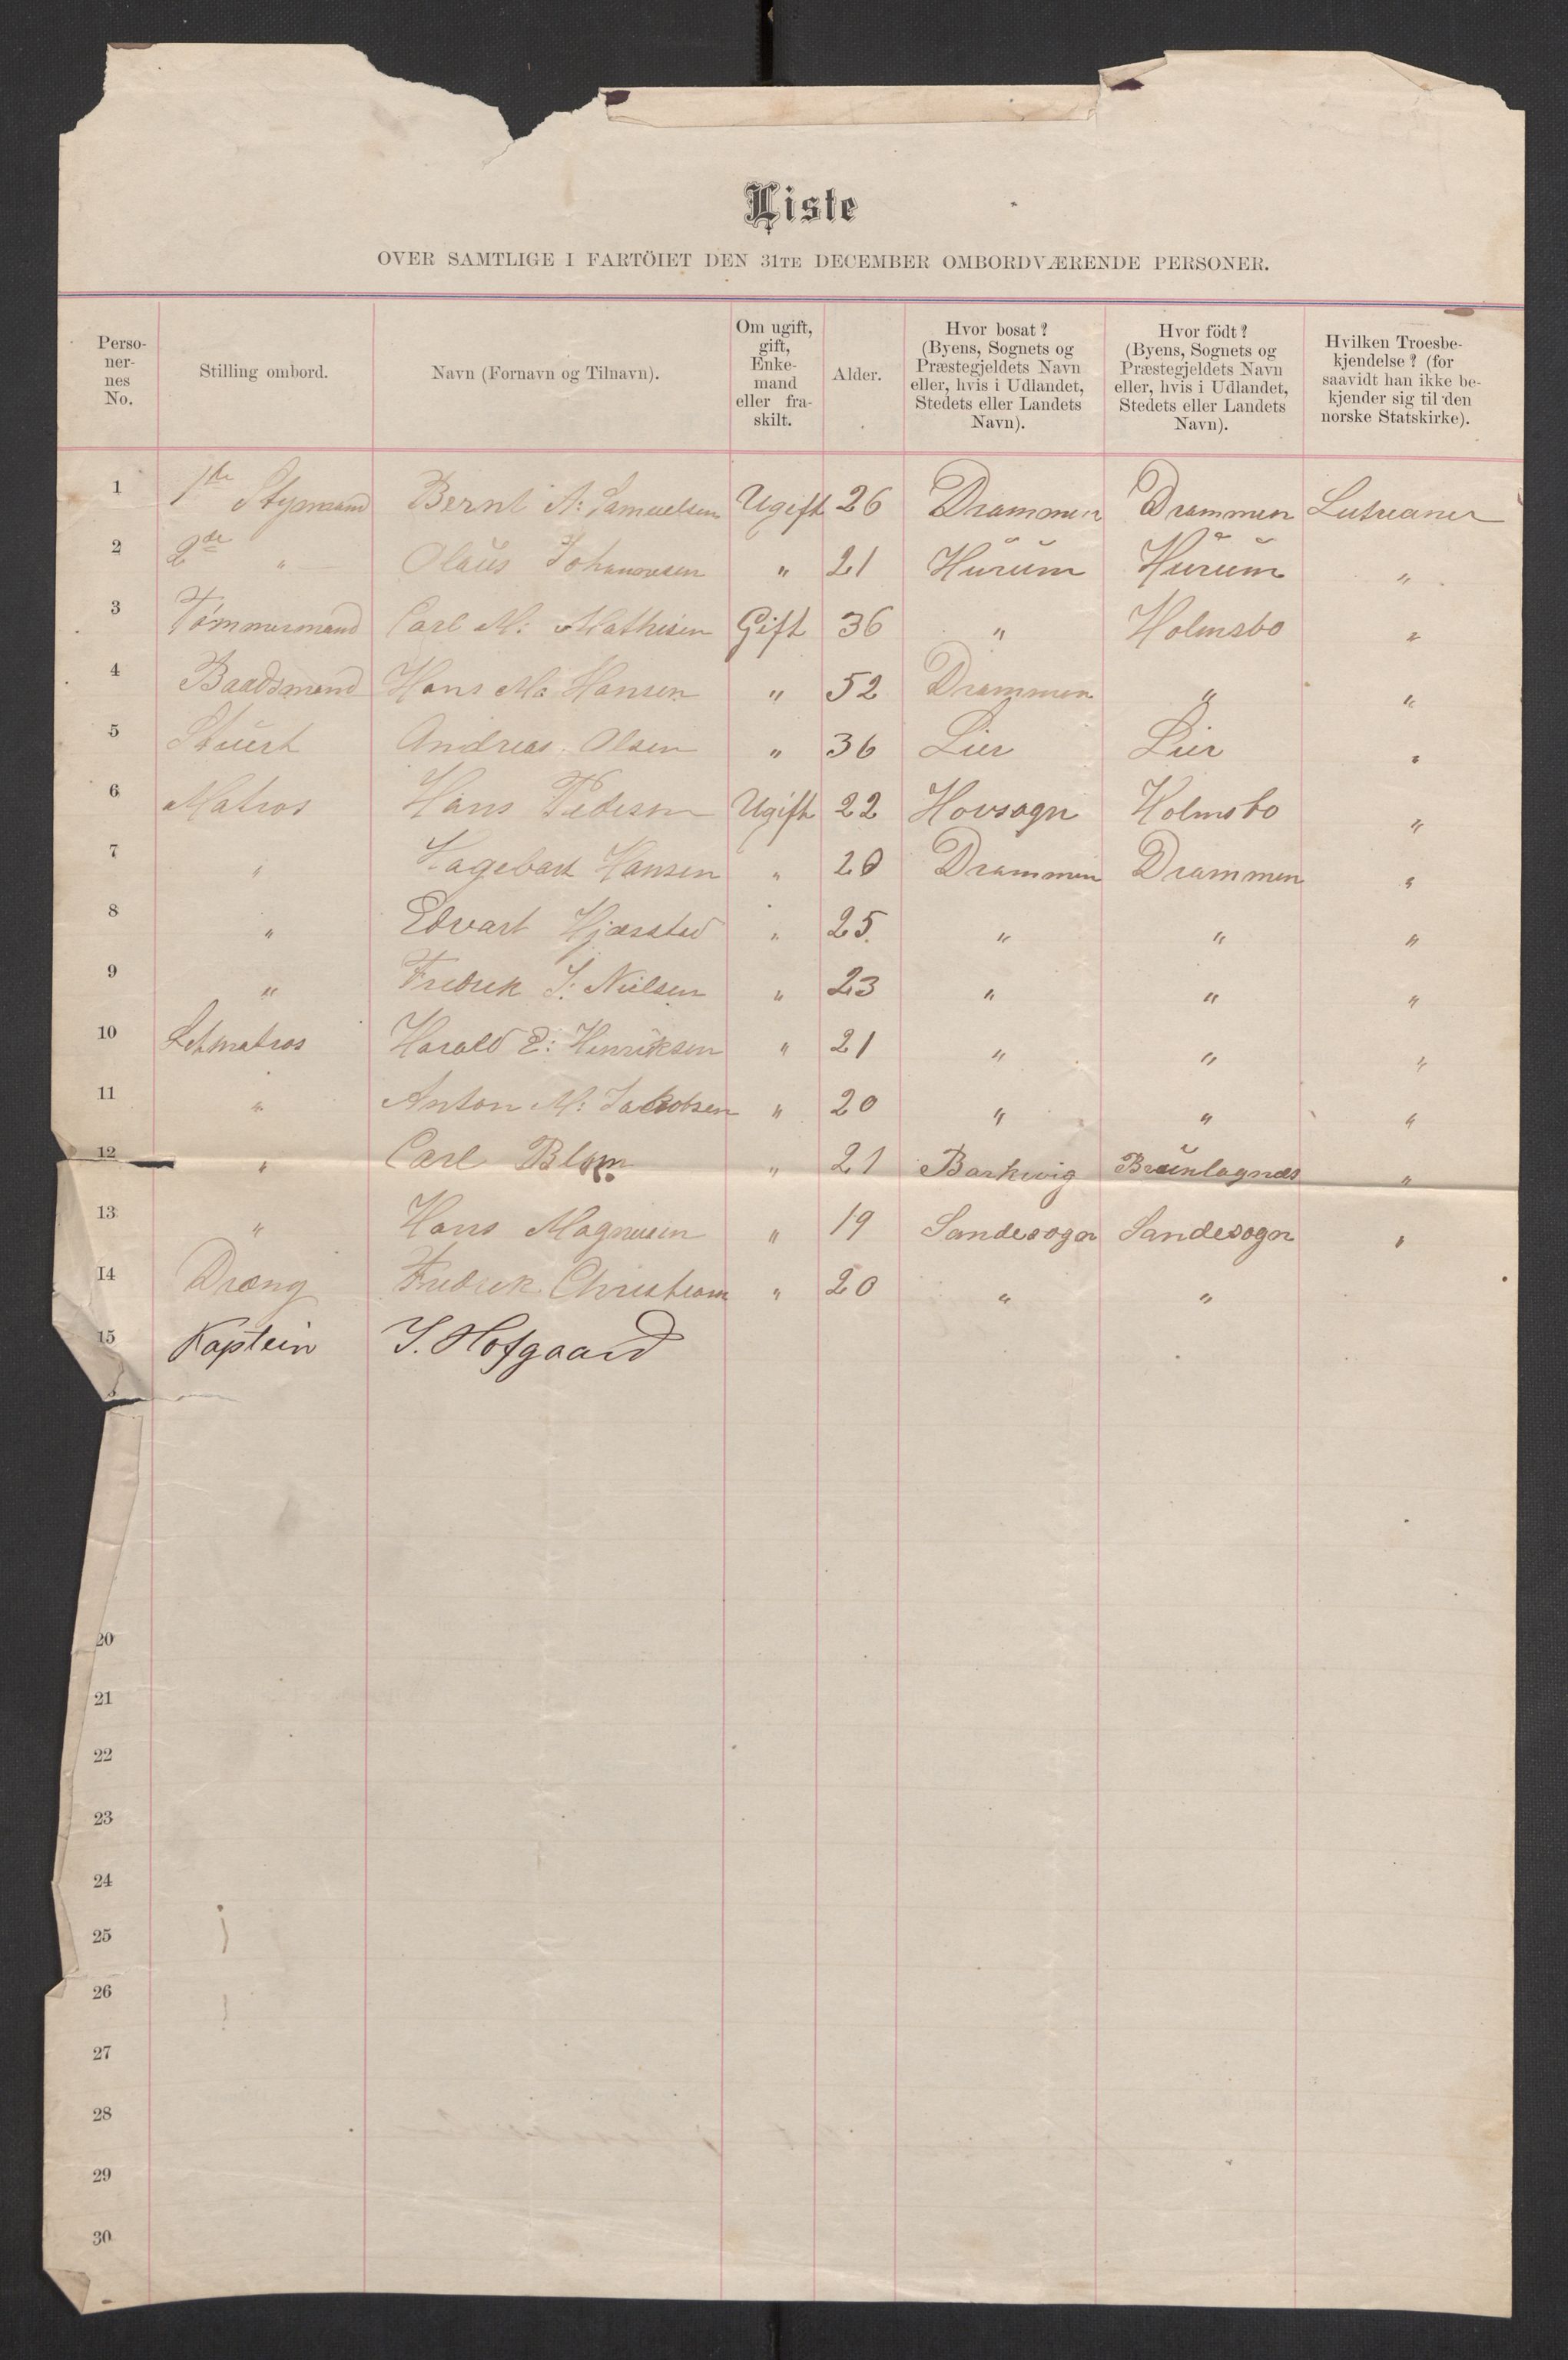 Liste
OVER SAMTLIGE I FARTÖIET DEN 31TE DECEMBER OMBORDVÆRENDE PERSONER.
Perso-
ner-
nes
No.
Stilling ombord.
Navn (Fornavn og Tilnavn).
Om ugift,
gift,
Enke-
mand
eller fra-
skilt.
Alder.
Hvor bosat?
(Byens, Sognets og
Præstegjeldets Navn
eller, hvis i Udlandet,
Stedets eller Landets
Navn).
Hvor födt?
(Byens, Sognets og
Præstegjeldets Navn
eller, hvis i Udlandet,
Stedets eller Landets
Navn).
Hvilken Troesbe-
kjendelse? (for
saavidt han ikke be-
kjender sig til den
norske Statskirke).
1 1ste Stypmand Bernt A: Samuelsen Ugift 26 Drammen Drammen Lutreaner
2 2de " Olaus Johannesen " 21 Hurum Hurum "
3 Tömmermand Carl M: Mathisen Gift 36 " Holmsbo "
4 Baadsmand Hans M: Hansen " 52 Drammen " "
5 Stuert Andreas Olsen " 36 Lier Lier "
6 Matros Hans Pedersen Ugift 22 Hovsogn Holmsbo "
7 " Hagebart Hansen " 20 Drammen Drammen "
8 " Edvart Hjærsted " 25 " " "
9 " Fredrek J: Nielsen " 23 " " "
10 Letmatros Harald E: Henriksen " 21 " " "
11 " Anton M: Jacobsen " 20 " " "
12 " Carl Blom " 21 Barkvig Brunlagnæs "
13 " Hans Magnusen " 19 Sandesogn Sandesogn "
14 Dræng Fredrek Christians " 20 " "
15 Kaptein J. Hofgaard
20
21
22
23
24
25
26
27
28
29
30